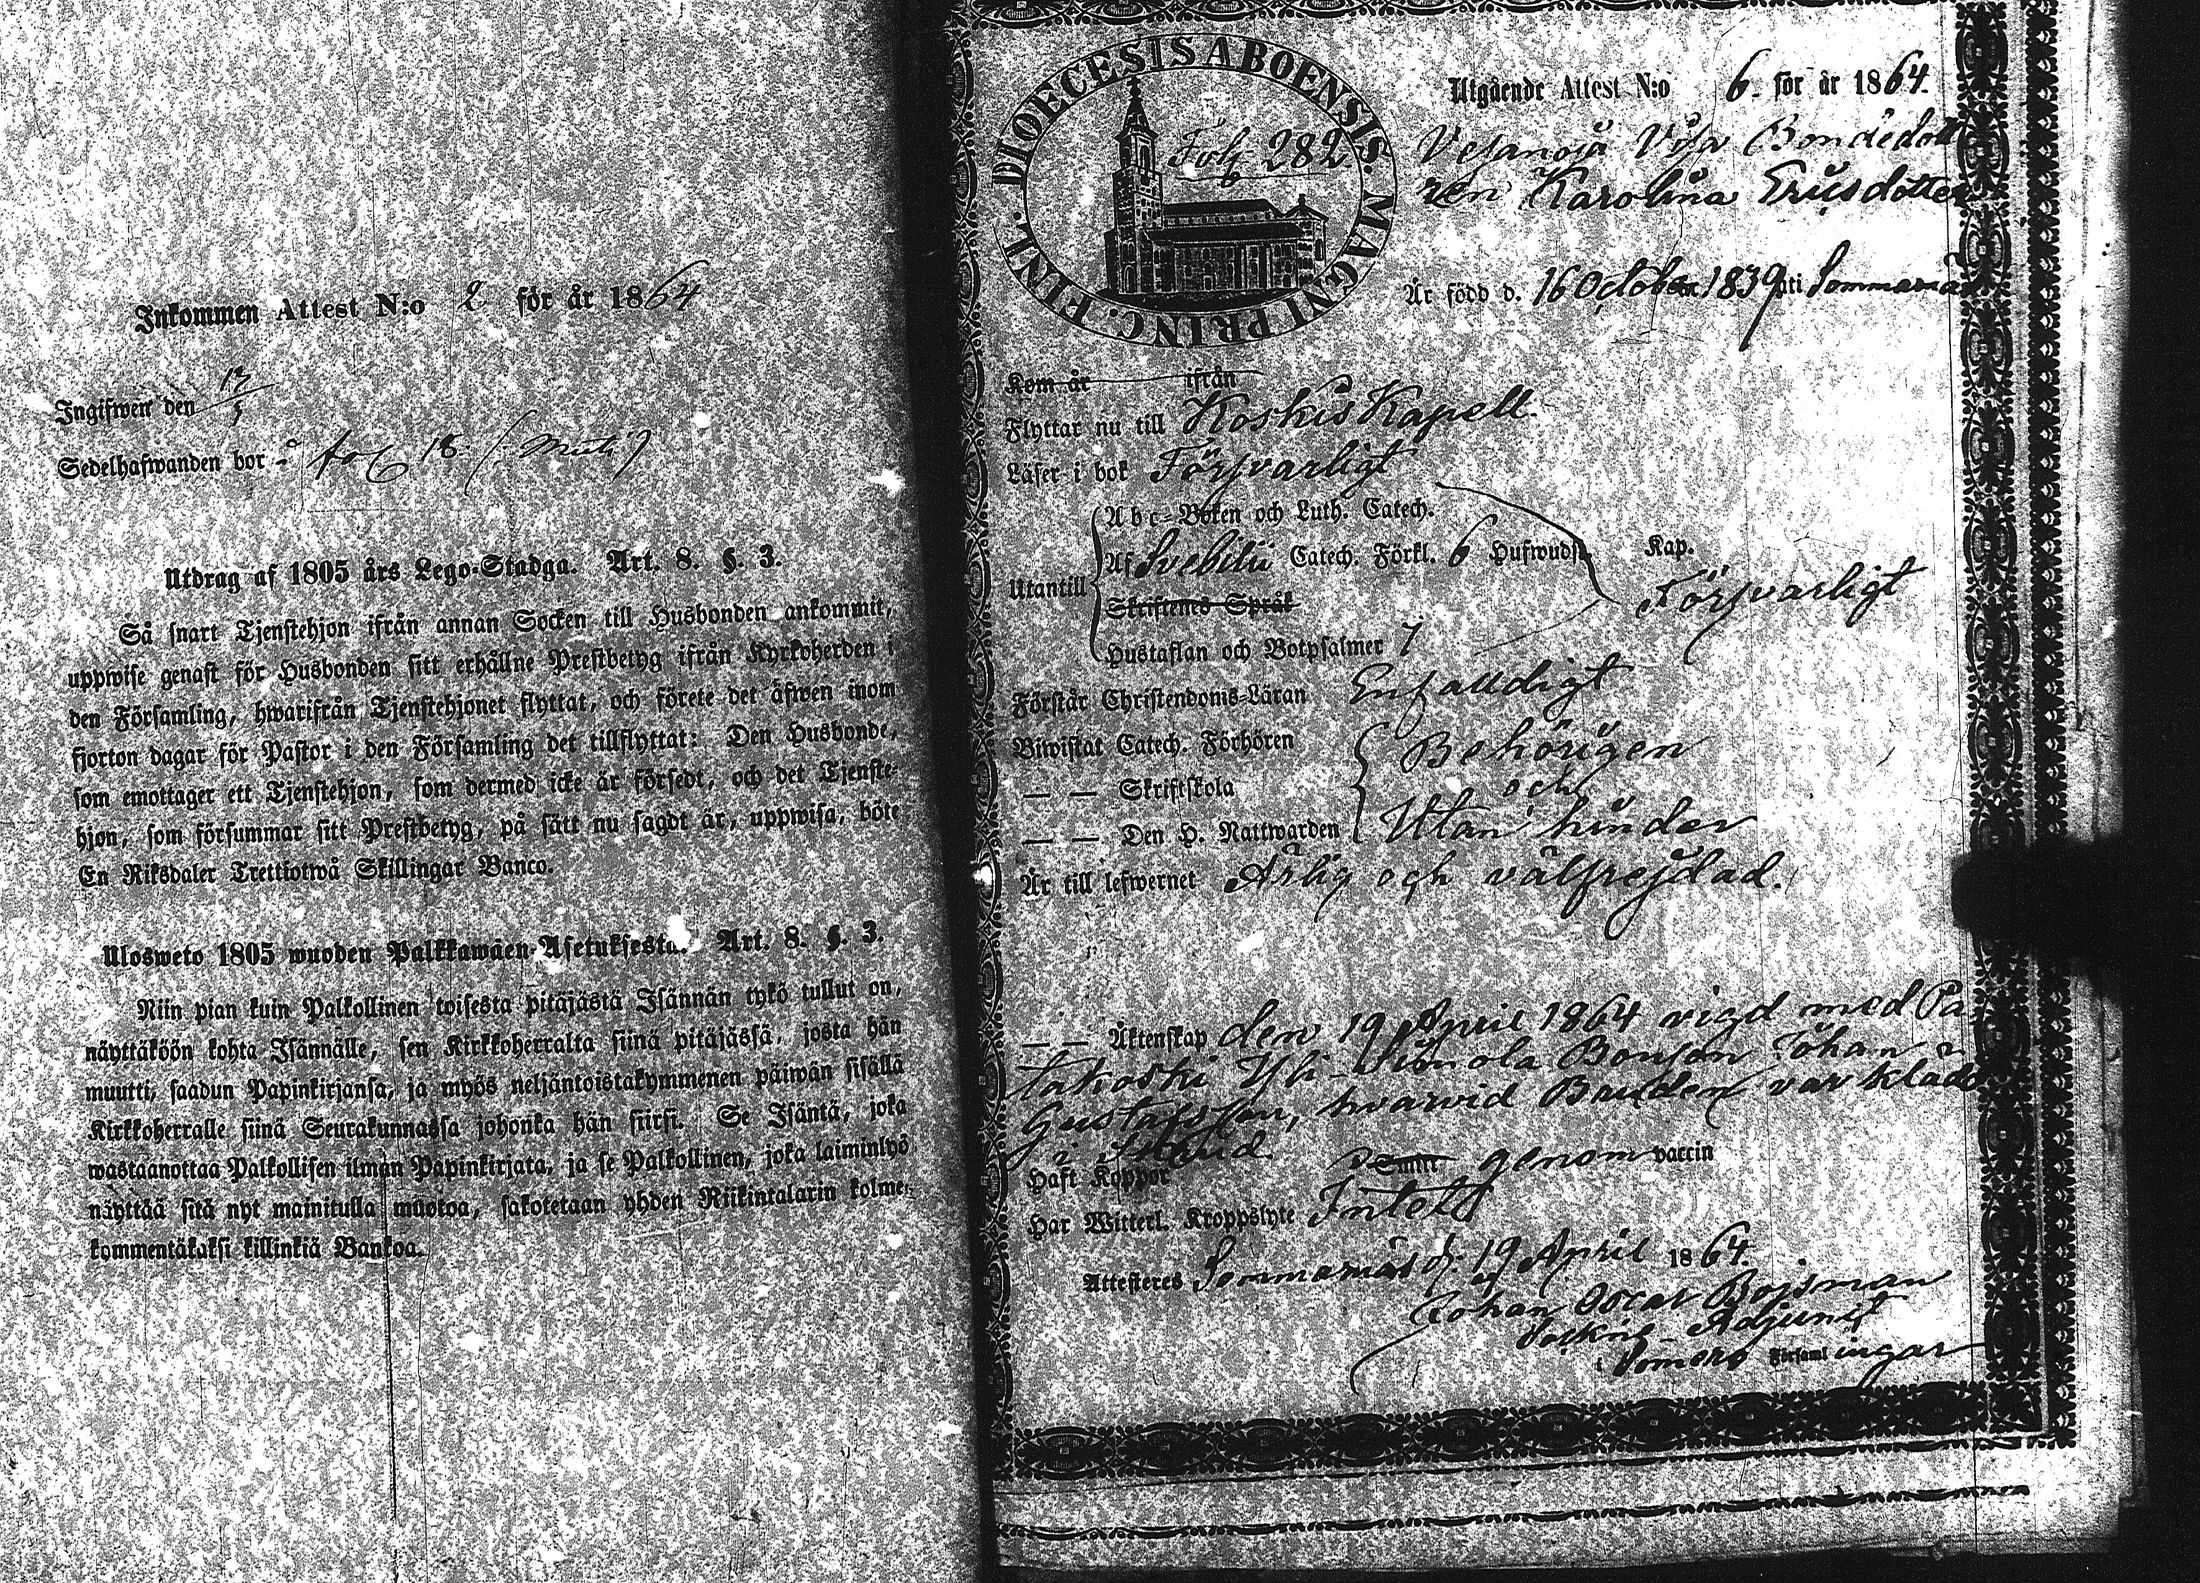 Inkommen Attest N:o 2 för år 1864
Ingifwen den
Sedelhafwanden bor å fol 18
Utdrag af 1805 års Lego-Stadga. Art. 8. §. 3.
Så snart Tjenstehjon ifrån annan Socken till Husbonden ankommit,
uppwise genast för Husbonden sitt erhållne Prestbetyg ifrån Kyrkoherden i
den Församling, hwarifrån Tjenstehjonet flyttat, och förete det äfwen inom
fjorton dagar för Pastor i den Församling det tillflyttat: Den Husbonde,
som emottager ett Tjenstehjon, som dermed icke är försedt, och det Tjenste-
hjon, som försummar sitt Prestbetyg, på sätt nu sagdt är, uppwisa, böte
En Riksdaler Trettiotwå Skillingar Banco.
Ulosweto 1805 wuoden Palkkawäen-Asetuksesta. Art. 8. §. 3.
Niin pian kuin Palkollinen toisesta pitäjästä Isännän tykö tullut on,
näyttäköön kohta Isännälle, sen Kirkkoherralta siinä pitäjässä, josta hän
muutti, saadun Papinkirjansa, ja myös neljäntoistakymmenen päiwän sisällä
Kirkkoherralle siinä Seurakunnassa johonka hän siirsi. Se Isäntä, joka
wastaanottaa Palkollisen ilman Papinkirjata, ja se Palkollinen, joka laiminlyö
näyttää sitä nyt mainitulla muotoa, sakotetaan yhden Riikintalarin kolme-
kommentäkaksi killinkiä Bankoa.
FINL. DIOECESIS ABOENSIS. MAGNI PRINC.
Fol. 282
Utgående Attest N:o 6 för år 1864.
Vesanoja Visa Bondedott
ren Karolina Ericsdotter
Är född d. 16 October 1839 uti Sommarnäs
Kom år ifrån
Flyttar nu till Koskis Kapell
Läser i bok Försvarligt
Abc-Boken och Luth. Catech.
Utantill Af Svebilii Catech. Förkl. 6 Hufwudst. Kap.
Skriftenes Språk Försvarligt
Hustaflan och Botpsalmer 7
Förstår Christendoms-Läran Enfalldigt
Biwistat Catech. Förhören Behörigen
— — Skriftskola och
— — Den H. Nattwarden Utan hinder
Är till lefwernet Ärlig och välfrejdad.
— — Äktenskap den 19 April 1864 vigd med Pa-
takoski Yli-Simola Bonson Johan
Gustafsson, hvarvid Bruden var klädd
i Skrud.
Haft Koppor genom vaccin
Har Witterl. Kroppslyte Intet
Attesteres Sommarnäs d. 19 April 1864.
Johan Oscar Bojsman
Sockne-Adjunct
i Somero Församlingar